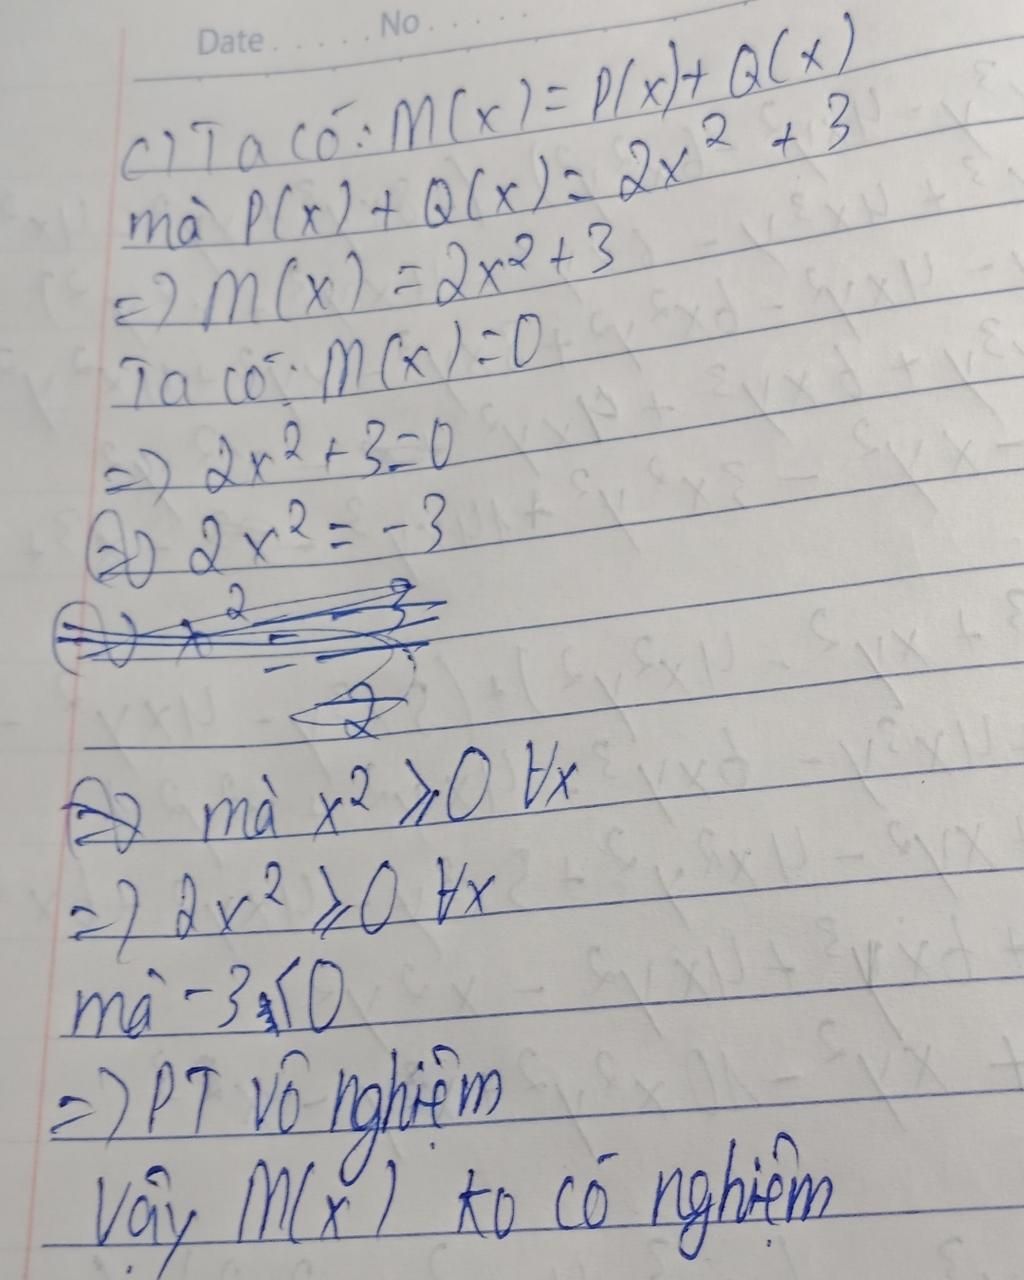 Date ..... No .....
c) Ta có: M(x) = P(x) + Q(x)
mà P(x) + Q(x) = 2x² + 3
=> M(x) = 2x² + 3
Ta có: M(x) = 0
=> 2x² + 3 = 0
=> 2x² = -3
=> mà x² ⩾ 0 ∀x
=> 2x² ⩾ 0 ∀x
mà -3 < 0
=> PT vô nghiệm
Vậy M(x) ko có nghiệm